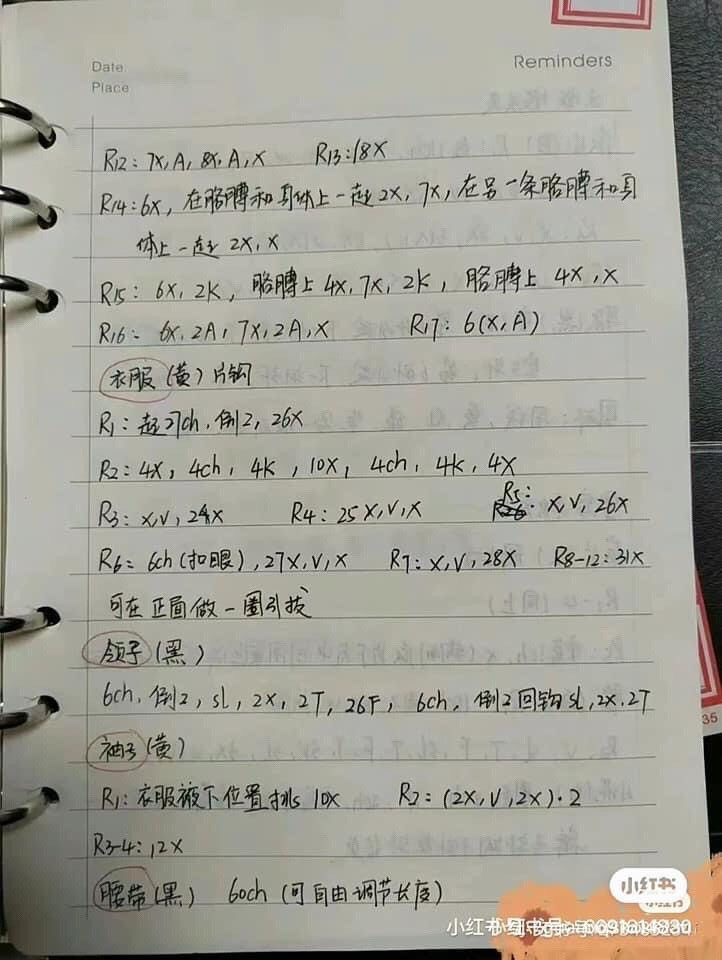 Date:
Place
Reminders
R12: 7X, A, 8X, A, X R13: 18X
R14: 6X, 在胳膊和身体上一起2X, 7X, 在另一条胳膊和身
体上一起 2X, X
R15: 6X, 2K, 胳膊上 4X, 7X, 2K, 胳膊上 4X, X
R16: 6X, 2A, 7X, 2A, X R17: 6(X, A)
衣服 (黄) 片钩
R1: 起27ch, 倒2, 26X
R2: 4X, 4ch, 4K, 10X, 4ch, 4K, 4X
R3: X, V, 24X R4: 25X, V, X R5: X, V, 26X
R6: 6ch (扣眼), 27X, V, X R7: X, V, 28X R8-12: 31X
可在正面做一圈引拔
领子 (黑)
6ch, 倒2, sl, 2X, 2T, 26F, 6ch, 倒2回钩sl, 2X, 2T
袖子 (黄)
R1: 衣服腋下位置挑 10X R2: (2X, V, 2X)·2
R3-4: 12X
腰带 (黑) 60ch (可自由调节长度)
小红书
35